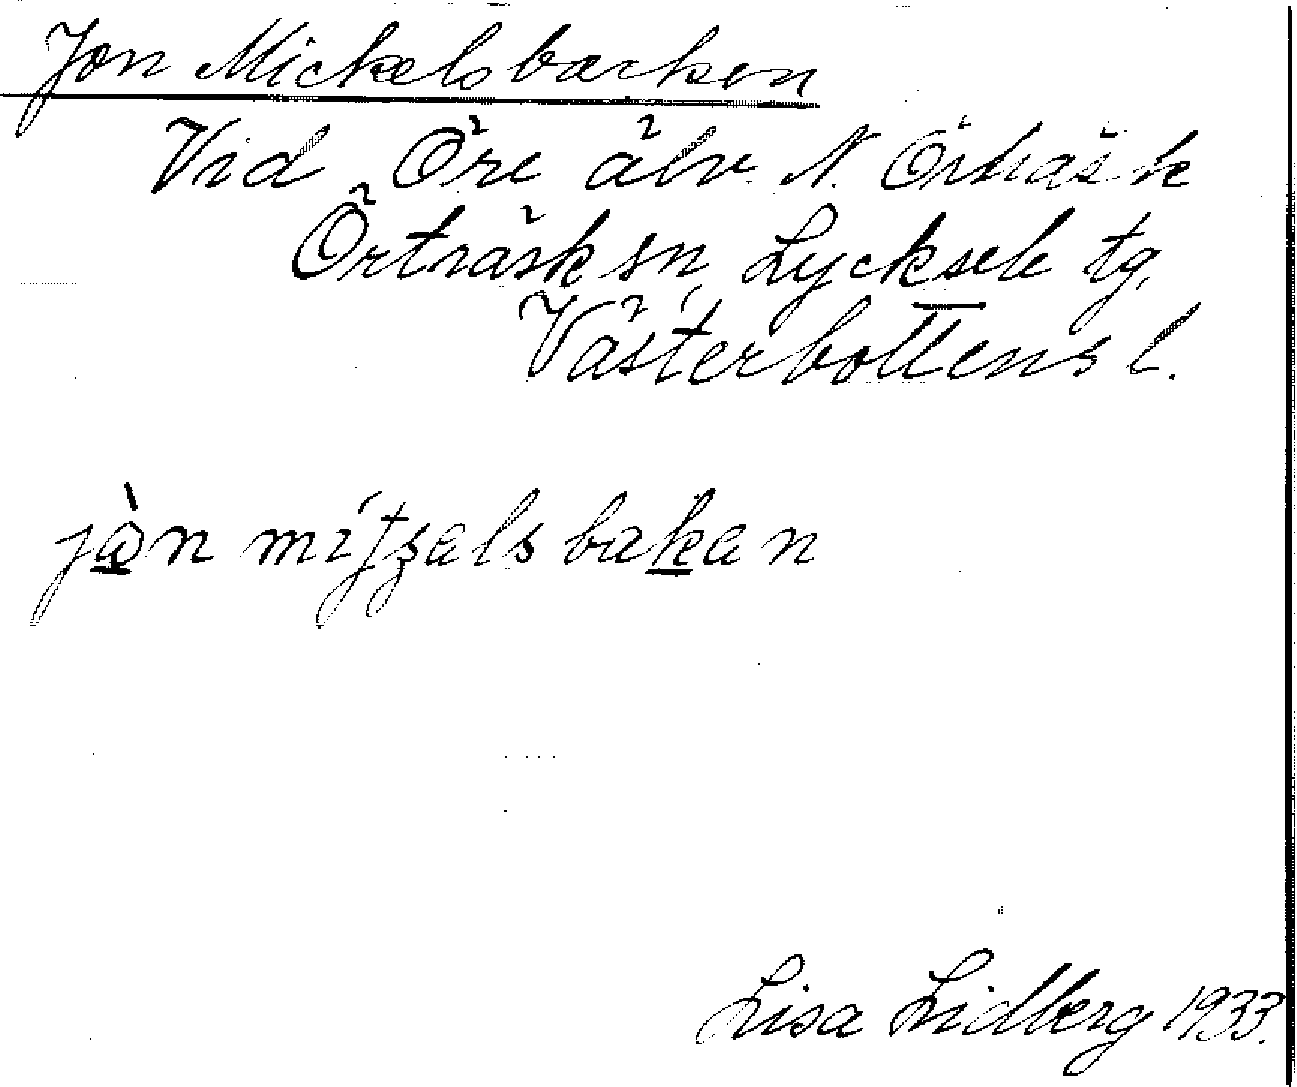 Jon Mickelsbacken
Vid Öre älv N. Örträsk
Örträsk sn, Lycksele tg,
Västerbottens l.
jòn míʈʂals bakan
Lisa Lidberg 1933.